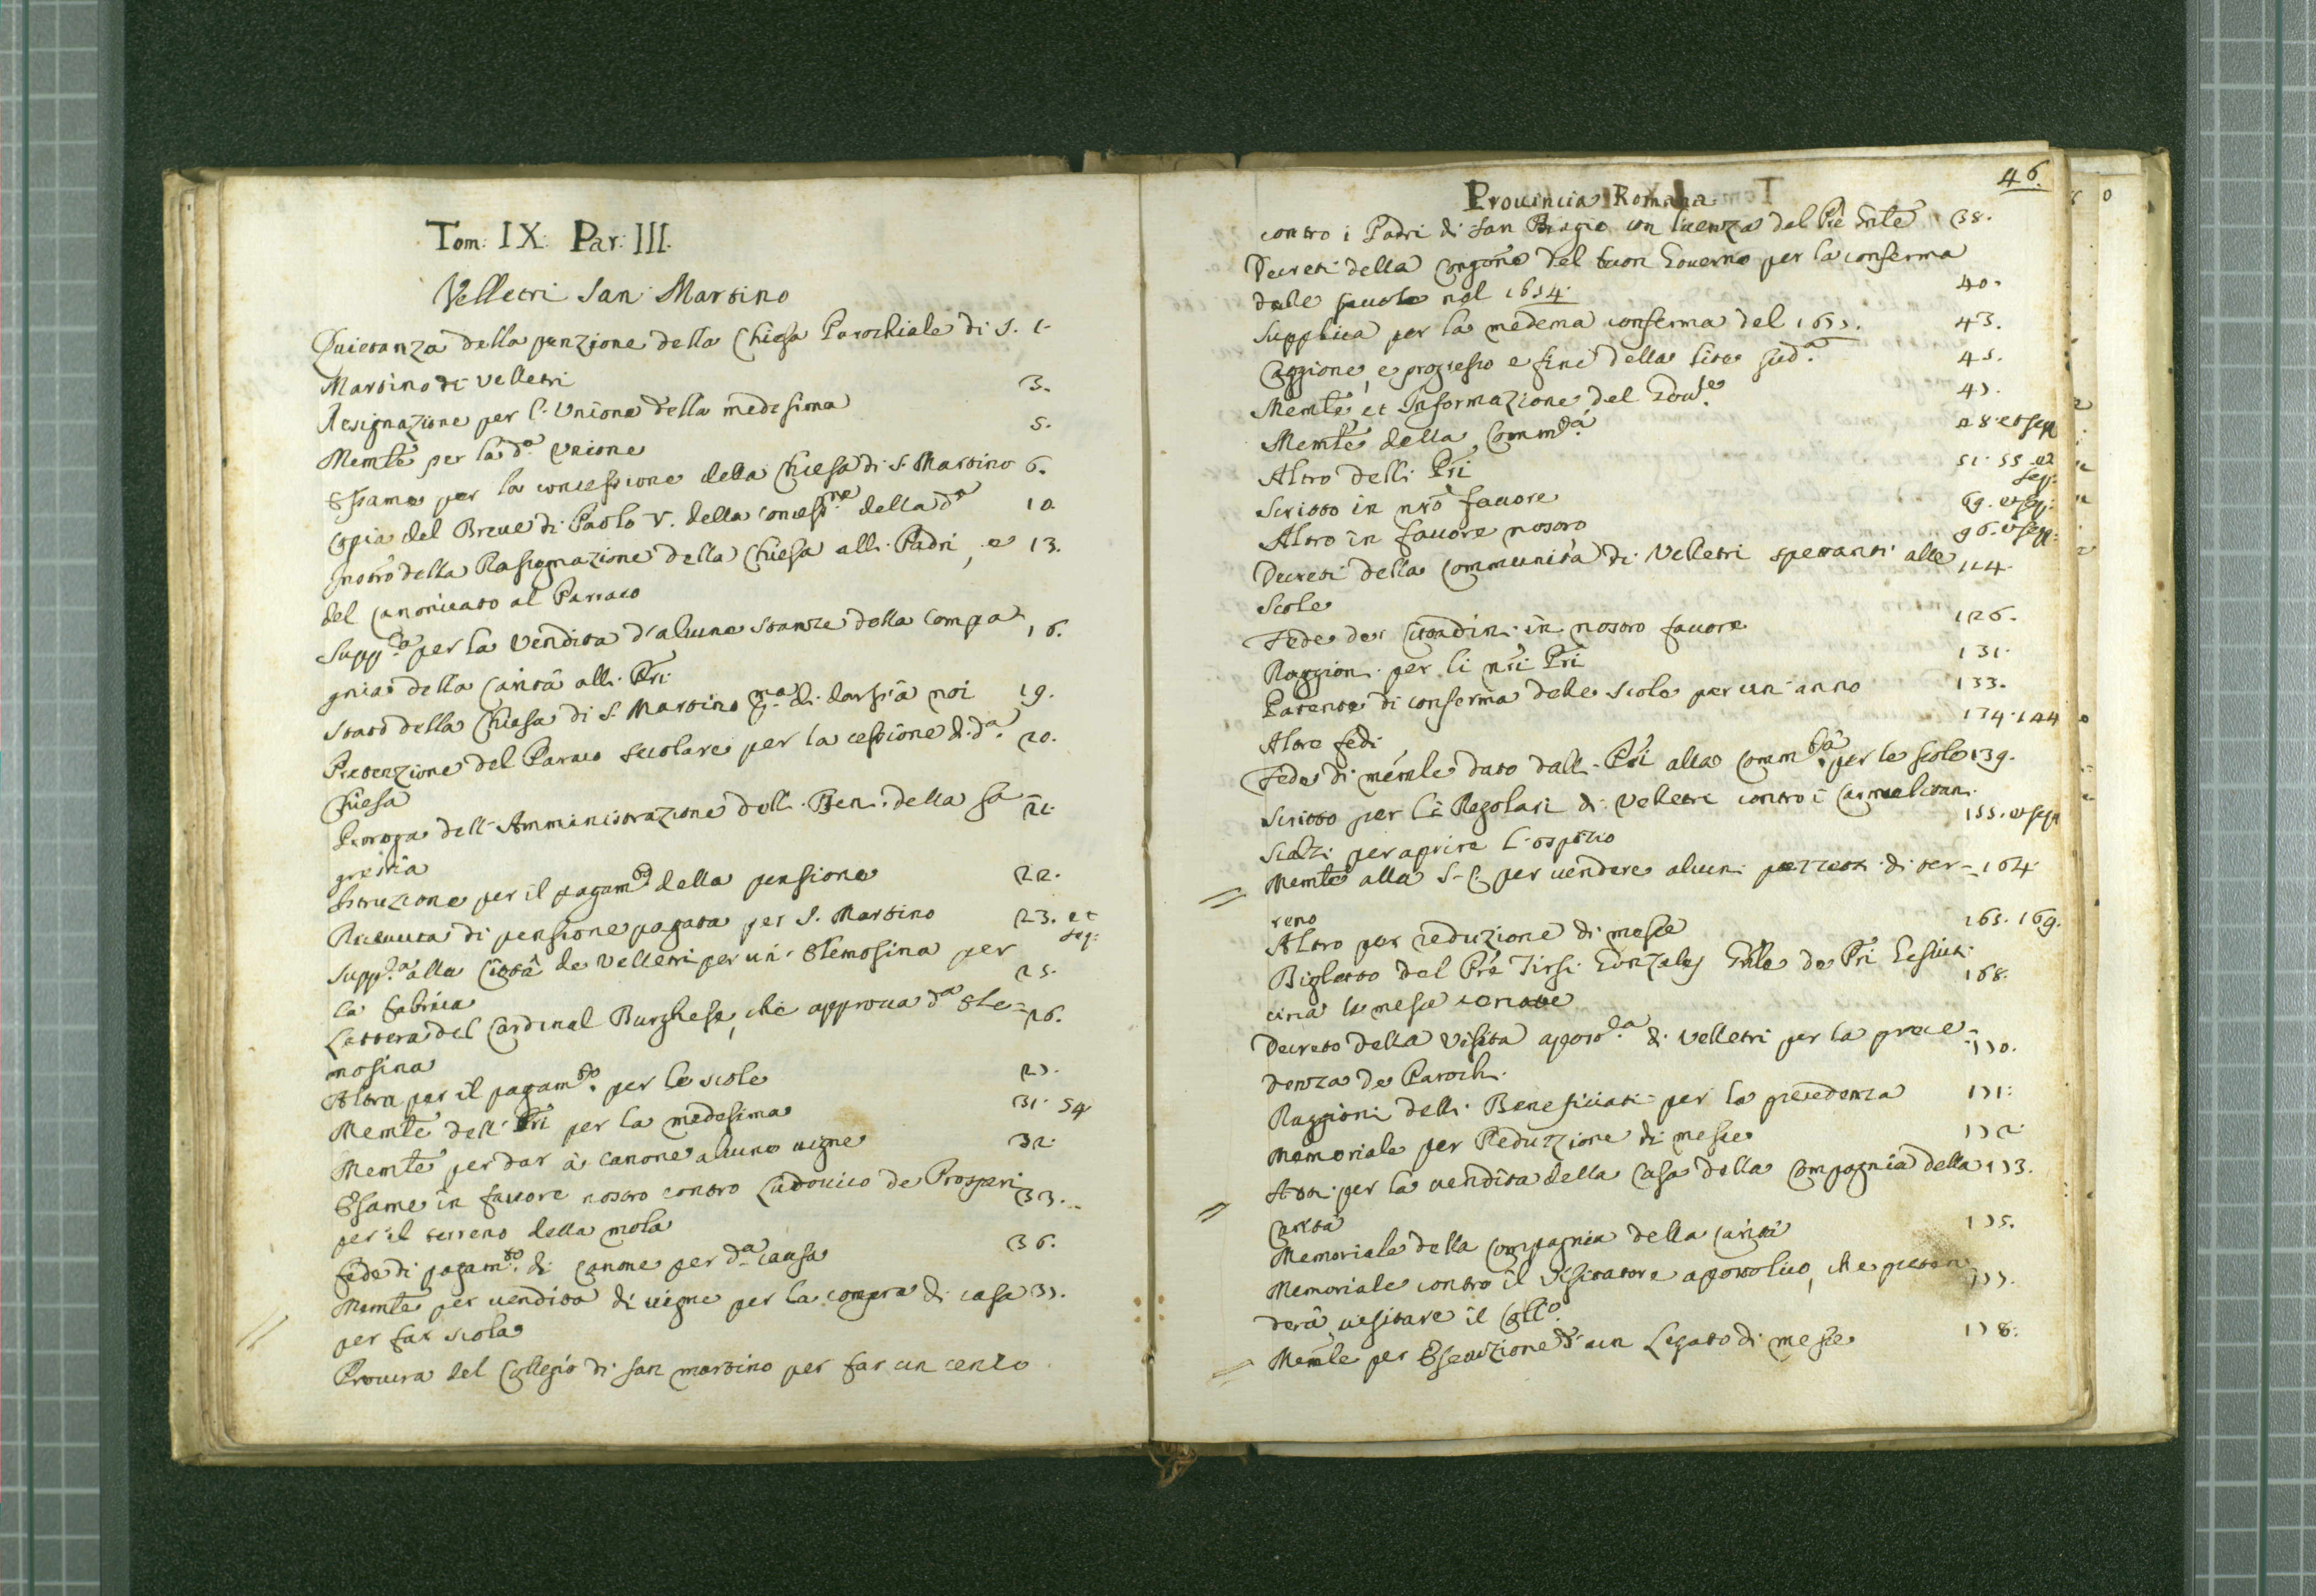 Tom: IX. Par: III.
Velletri San Martino
Quietanza della penzione della Chiesa Parochiale di S. 1.
Martino di Velletri
Resignazione per l'Unione della medesima 3.
Memle per la da. Unione 5.
Esame per la concessione della Chiesa di S. Martino 6.
Copia del Breue di Paolo V. della concessne della da 10.
della Rassegnazione della Chiesa alli Padri, e 13.
del Canonicato al Parraco
Suppca per la Vendita d'alcune stanze della Compa 16.
gnia della Carità alli Pri
Stato della Chiesa di S. Martino pma di darsi à noi 19.
Pretenzione del Parraco secolare per la cessione di da. 20.
Chiesa
Proroga dell'Amministrazione delli Beni della Sa- 21.
grestia
Istruzione per il pagamto della pensione 22.
Riceuuta di pensione pagata per S. Martino 23. et seq:
Suppca alla Città de Velletri per un'elemosina per 25.
la fabrica
Lettera del Cardinal Burghese, che approua da ele= 26.
mosina
Altra per il pagamto. per le scole 27.
Memle dell' Pri per la medesima 31. 54
Memle per dar à canone alcune uigne 32.
Esame in fauore nostro contro Ludouico de Prosperi 33.
per il terreno della mola
fede di pagamto. di Canone per da causa 36.
Memle per uendita di uigne per la compra di casa 37.
per far scola
Procura del Collegio di San Martino per far un cenzo
46.
Prouincia Romana
contro i Padri di San Biagio con licenza del Pre Gnle 38.
Decreti della Congne del buon Gouerno per la conferma
delle scuole nel 1654. 40.
Supplica per la medema conferma del 1677. 43.
Caggione, e progresso e fine della lite suda. 45.
Memle, et Informazione del Goure. 47.
Memle della Commtà 48. et seqq
Altro delli Pri 51. 55. et seq:
Scritto in nro fauore 69. et seq:
Altro in fauore nostro 96. et seqq:
Decreti della Communità di Velletri spettanti alle 114.
Scole
Fede de Cittadini in nostro fauore 126.
Raggioni per li nri Pri 131.
Patente di conferma delle scole per un'anno 133.
Altre fedi 134. 144
Fede di memle dato dalli Pri alla Commtà per le scole 139.
Scritto per li Regolari di Velletri contro i Carmelitani 155. et seqq
Scalzi per aprire l'ospizio
Memle alla S. C. per uendere alcuni pezzetti di ter= 164.
reno
Altro per reduzione di messe 165. 169.
Biglietto del Pre Tirsi Gonzales Gnle de Pri Gesuiti 168.
circa le messe
Decreto della Visita apostca. di Velletri per la prece= 170.
denza de Parochi
Raggioni delli Beneficiati per la precedenza 171.
Memoriale per Reduzzione di messe 172.
Atti per la uendita della Casa della Compagnia della 173.
Carità
Memoriale della Compagnia della Carità 175.
Memoriale contro il Visitatore apostolico, che preten 177.
derà uisitare il Collo.
Memle per Esecuzione d'un Legato di messe 178.